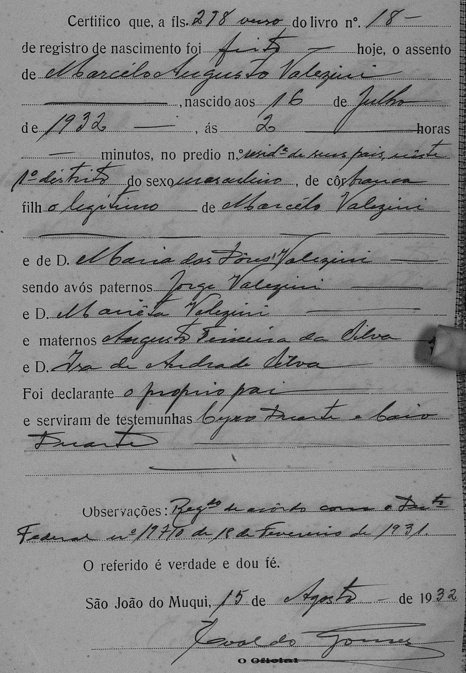 Certifico que, a fls. 278 verso do livro nº. 18 -
de registro de nascimento foi feito — hoje, o assento
de Marcélo Augusto Valezini
, nascido aos 16 de Julho
de 1932 — , ás 2 horas
— minutos, no predio n.º resid.ª de seus pais, neste
1º distrito do sexo masculino , de côr branca
filh o legitimo de Marcélo Valezini
e de D. Maria das Valezini
sendo avós paternos Jorge Valezini
e D. Mariêta Valezini
e maternos Augusto da Silva
e D. Iza de Andrade Silva
Foi declarante o proprio pai
e serviram de testemunhas Cyro Duarte e Caio
Duarte
Observações: Reg.do de acórdo com o Dec.to
Federal nº 19710 de 18 de Fevereiro de 1931.
O referido é verdade e dou fé.
São João do Muqui, 15 de Agosto de 1932
Gomes
O Oficial